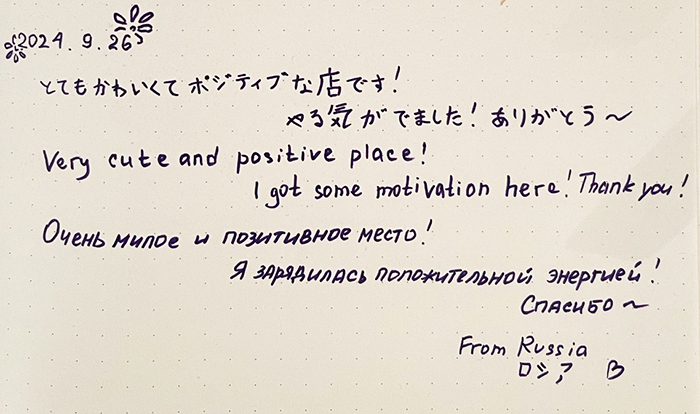 2024.9.26
とてもかわいくてポジティブな店です!
やる気がでました!ありがとう~
Very cute and positive place!
I got some motivation here! Thank you!
Очень милое и позитивное место!
Я зарядилась положительной энергией!
Спасибо ~
From Russia
ロシア B